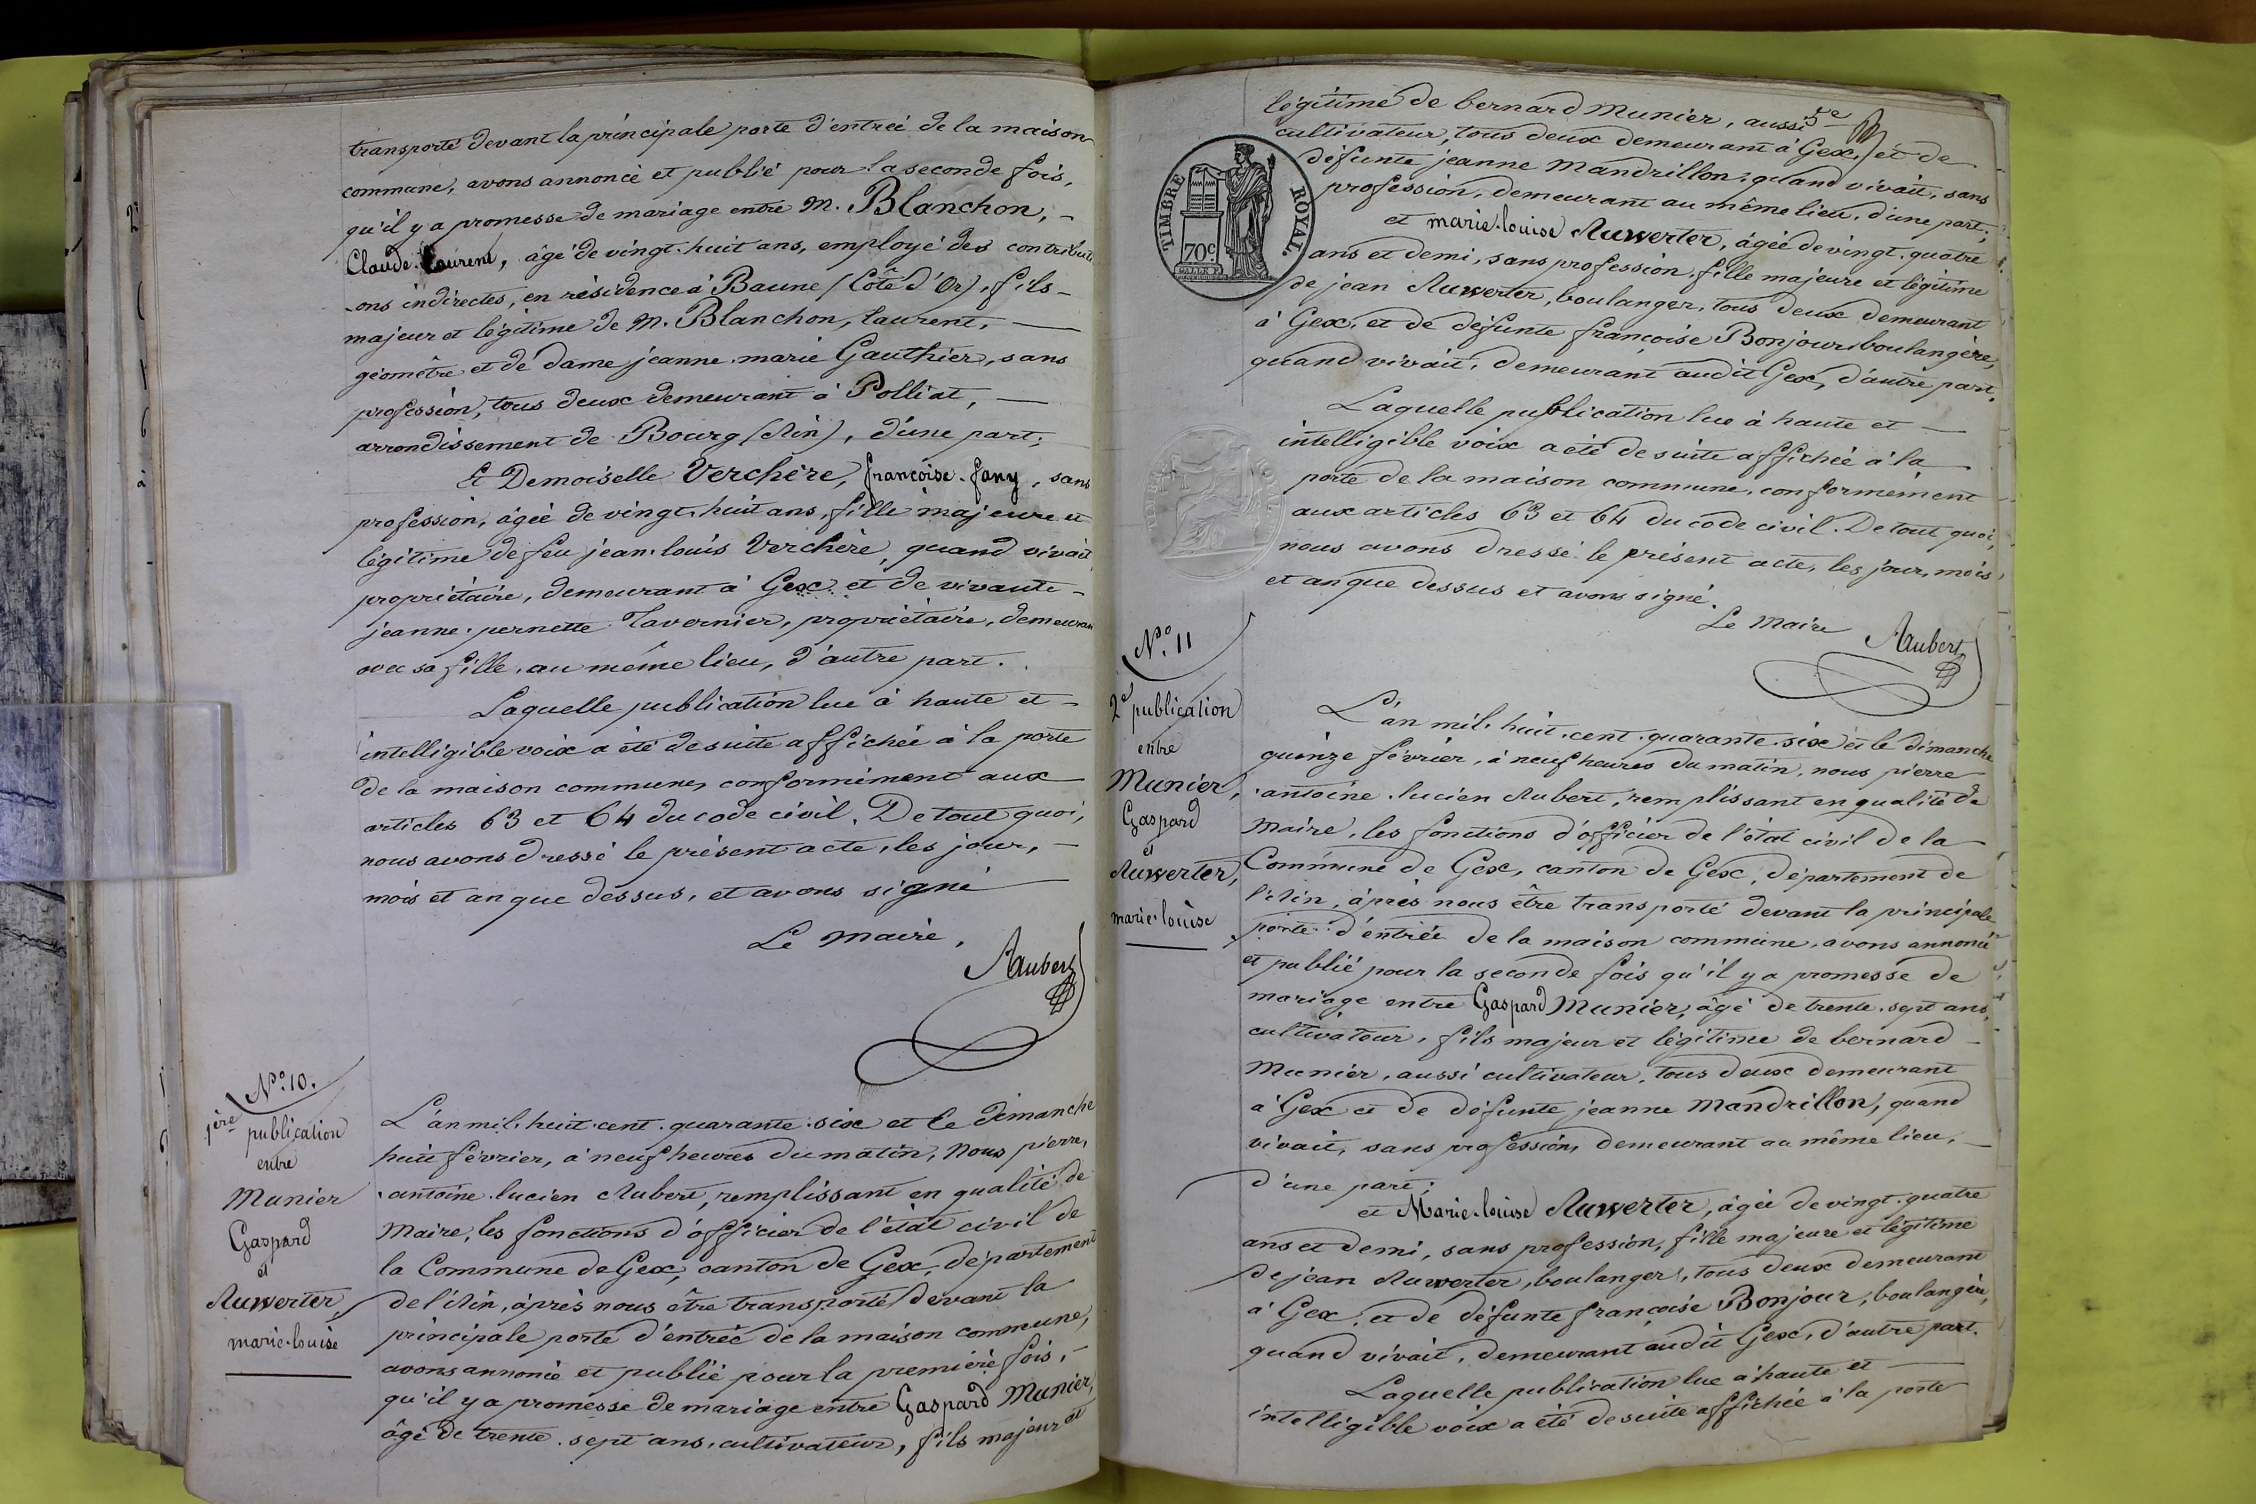 transporté devant la principale porte d'entrée de la maison
commune, avons annoncé et publié pour la seconde fois,
qu'il y a promesse de mariage entre M. Blanchon, -
Claude-Laurent, âgé de vingt-huit ans, employé des contributi
-ons indirectes, en résidence à Baune (Côte d'Or), fils -
majeur et légitime de M. Blanchon, laurent, -
géomètre et de dame jeanne-marie Gauthier, sans
profession, tous deux demeurant à Polliat, -
arrondissement de Bourg (Ain), d'une part;
Et Demoiselle Verchère, françoise-fany, sans
profession, âgée de vingt-huit ans, fille majeure et
légitime de feu jean-louis Verchère, quand vivait
propriétaire, demeurant à Gex et de vivante -
jeanne-pernette Tavernier, propriétaire, demeurant
avec sa fille, au même lieu, d'autre part.
Laquelle publication lue à haute et -
intelligible voix a été de suite affichée à la porte
de la maison commune, conformément aux
articles 63 et 64 du code civil. De tout quoi,
nous avons dressé le présent acte, les jour, -
mois et an que dessus, et avons signé
Le maire,
Aubert
N.° 10.
1ère publication
entre
Munier
Gaspard
et
Auwerter,
marie-louise
L'an mil-huit-cent-quarante-six et le dimanche
huit février, à neuf heures du matin, Nous pierre,
-antoine-lucien Aubert, remplissant en qualité de
Maire, les fonctions d'officier de l'état civil de
la Commune de Gex, canton de Gex, département
de l'Ain, après nous être transporté devant la
principale porte d'entrée de la maison commune,
avons annoncé et publié pour la première fois, -
qu'il y a promesse de mariage entre Gaspard Munier,
âgé de trente-sept ans, cultivateur, fils majeur et
5e
légitime de bernard Munier, aussi
cultivateur, tous deux demeurant à Gex, et de
défunte jeanne Mandrillon, quand vivait, sans
profession, demeurant au même lieu, d'une part;
et marie-louise Auwerter, âgée de vingt-quatre
ans et demi, sans profession, fille majeure et légitime
de jean Auwerter, boulanger, tous deux demeurant
à Gex, et de défunte françoise Bonjour, boulangère,
quand vivait, demeurant audit Gex, d'autre part.
TIMBRE ROYAL.
70c
Laquelle publication lue à haute et -
intelligible voix a été de suite affichée à la
porte de la maison commune, conformément
aux articles 63 et 64 du code civil. De tout quoi,
nous avons dressé le présent acte, les jour, mois
et an que dessus et avons signé.
Le Maire
Aubert
N.° 11
2e publication
entre
Munier,
Gaspard
et
Auwerter,
marie-louise
L'an mil-huit-cent-quarante-six et le dimanche
quinze février, à neuf heures du matin, nous pierre
-antoine-lucien Aubert, remplissant en qualité de
Maire, les fonctions d'officier de l'état civil de la
Commune de Gex, canton de Gex, département de
l'Ain, après nous être transporté devant la principale
porte d'entrée de la maison commune, avons annoncé
et publié pour la seconde fois qu'il y a promesse de
mariage entre Gaspard Munier, âgé de trente-sept ans,
cultivateur, fils majeur et légitime de bernard -
Munier, aussi cultivateur, tous deux demeurant
à Gex et de défunte jeanne Mandrillon, quand
vivait, sans profession, demeurant au même lieu, -
d'une part;
et Marie-louise Auwerter, âgée de vingt-quatre
ans et demi, sans profession, fille majeure et légitime
de jean Auwerter, boulanger, tous deux demeurant
à Gex, et de défunte françoise Bonjour, boulangère,
quand vivait, demeurant audit Gex, d'autre part.
Laquelle publication lue à haute et -
intelligible voix a été de suite affichée à la porte